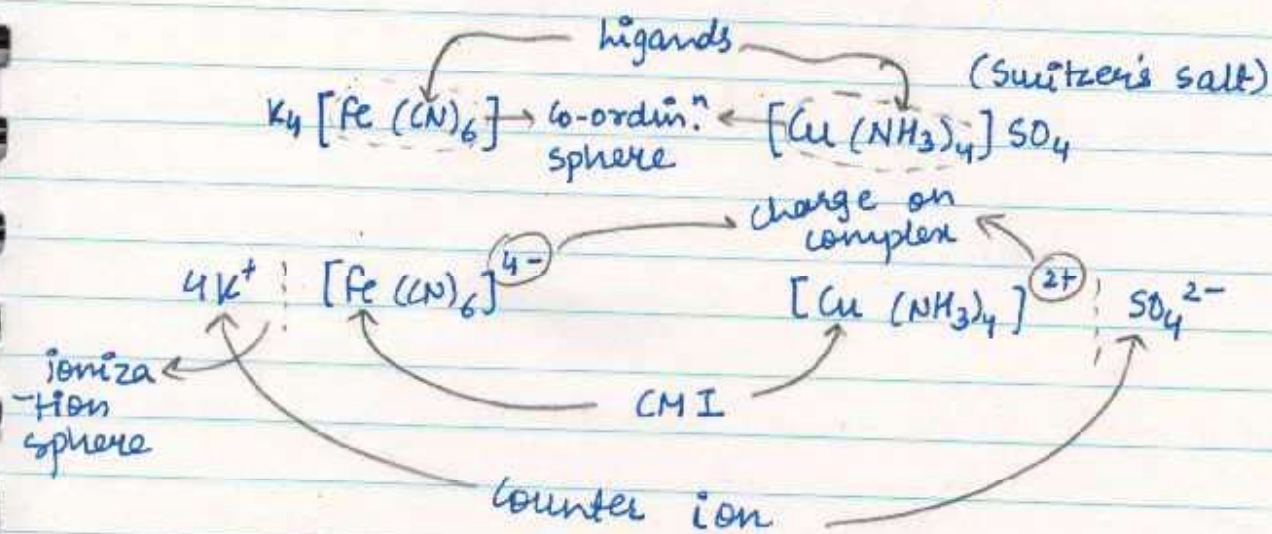 Ligands
(Switzer's salt)
K₄ [Fe (CN)₆] → Co-ordin.ⁿ ← [Cu (NH₃)₄] SO₄
sphere
charge on
complex
4K⁺ [Fe (CN)₆]⁴⁻ [Cu (NH₃)₄]²⁺ SO₄²⁻
ioniza
-tion
sphere
CMI
Counter ion